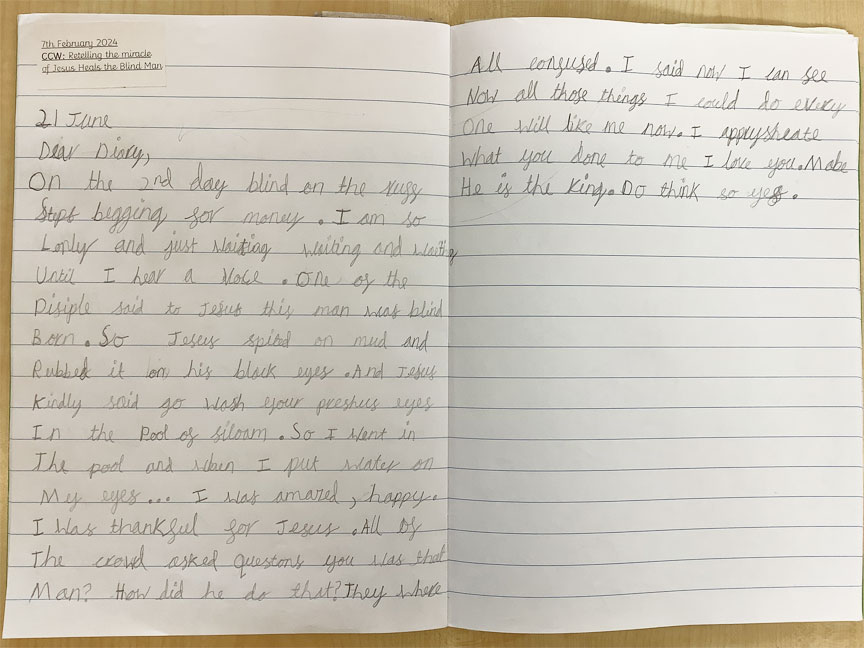 7th February 2024
CCW: Retelling the miracle
of Jesus Heals the Blind Man
21 June
Dear Diary,
On the 2nd day blind on the rugg
Steps begging for money . I am so
Lonly and just waiting waiting and waiting
Until I hear a voice . One of the
Disiple said to Jesus this man was blind
Born . So Jesus spited on mud and
Rubbed it on his black eyes . And Jesus
Kindly said go wash your preshus eyes
In the Pool of siloam . So I went in
The pool and when I put water on
My eyes... I was amazed, happy.
I was thankful for Jesus . All of
The crowd asked questons you was that
Man? How did he do that? They where
All confused. I said now I can see
Now all those things I could do every
One will like me now. I apprysheate
What you done to me I love you. Mabe
He is the King. Do think so yes .